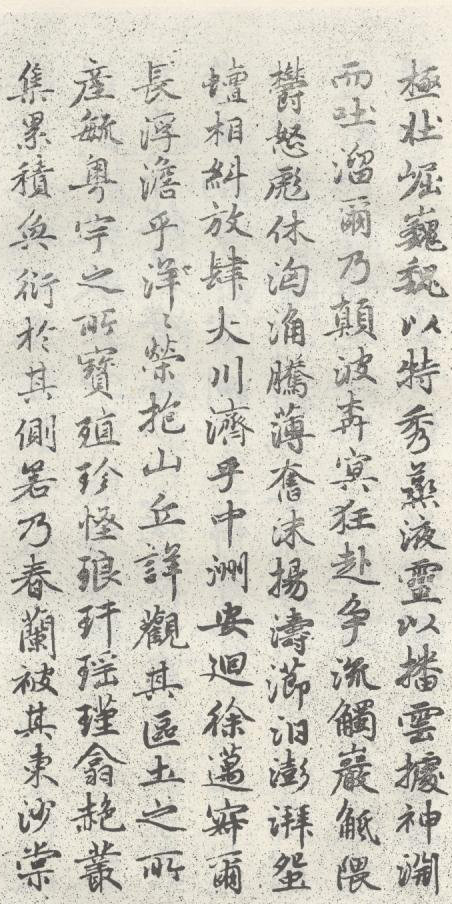 極壯崛巍巍以特秀蒸液靈以播雲據神渊
而吐溜爾乃顛波奔突狂赴爭流觸巖觝隈
欝怒彪休洶涌騰薄奮沫揚濤瀄汩澎湃蜿
蟺相糾放肆大川濟乎中洲安迴徐邁寂爾
長浮澹乎洋〻縈抱山丘詳觀其區土之所
產毓奧宇之所寶殖珍怪琅玕瑶瑾翕赩叢
集累積奐衍於其側若乃春蘭被其東沙棠